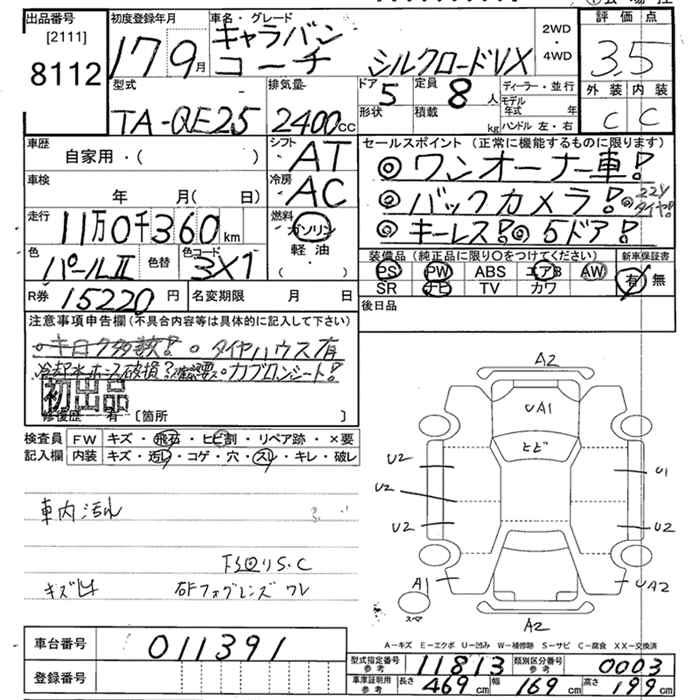 出品番号 [2111] 8112
初度登録年月 17 9月
車名・グレード キャラバン コーチ シルクロードVX
2WD ・ 4WD
評価点 3.5
外装 C 内装 C
型式 TA-QE25
排気量 2400cc
ドア 5 形状
定員 8人 積載 kg
ディーラー・並行
モデル年式 年
ハンドル 左・右
車歴 自家用・( )
シフト AT
セールスポイント (正常に機能するものに限ります)
◎ワンオーナー車!
◎バックカメラ!◎
◎キーレス!◎5ドア!
車検 年 月( 日)
冷房 AC
走行 11万0千360km
燃料 ガソリン 軽油 ( ・ )
色 パールⅡ 色替 色コード 3X1
装備品 (純正品に限り○をつけてください)
PS PW ABS エアB AW
SR ナビ TV カワ
新車保証書 有 無
R券 15220円 名変期限 月 日
後日品
注意事項申告欄(不具合内容等は具体的に記入して下さい)
・キロク多数! ・タイヤハウス有
冷却水ホース破損?
初出品
修復歴 有 〔箇所 〕
検査員 記入欄
FW キズ・飛石・ヒビ割・リペア跡・×要
内装 キズ・汚レ・コゲ・穴・スレ・キレ・破レ
車内汚れ
下回りS.C
A2
UA1
ヒビ
U2 U1
U2
U2 U2
A1 UA2
スペア
A2
A-キズ E-エクボ U-凹み W-補修跡 S-サビ C-腐食 XX-交換済
車台番号 011391
登録番号
型式指定番号 参考 11813 類別区分番号 参考 0003
車庫証明用 参考 長さ 469cm 幅 169cm 高さ 199cm